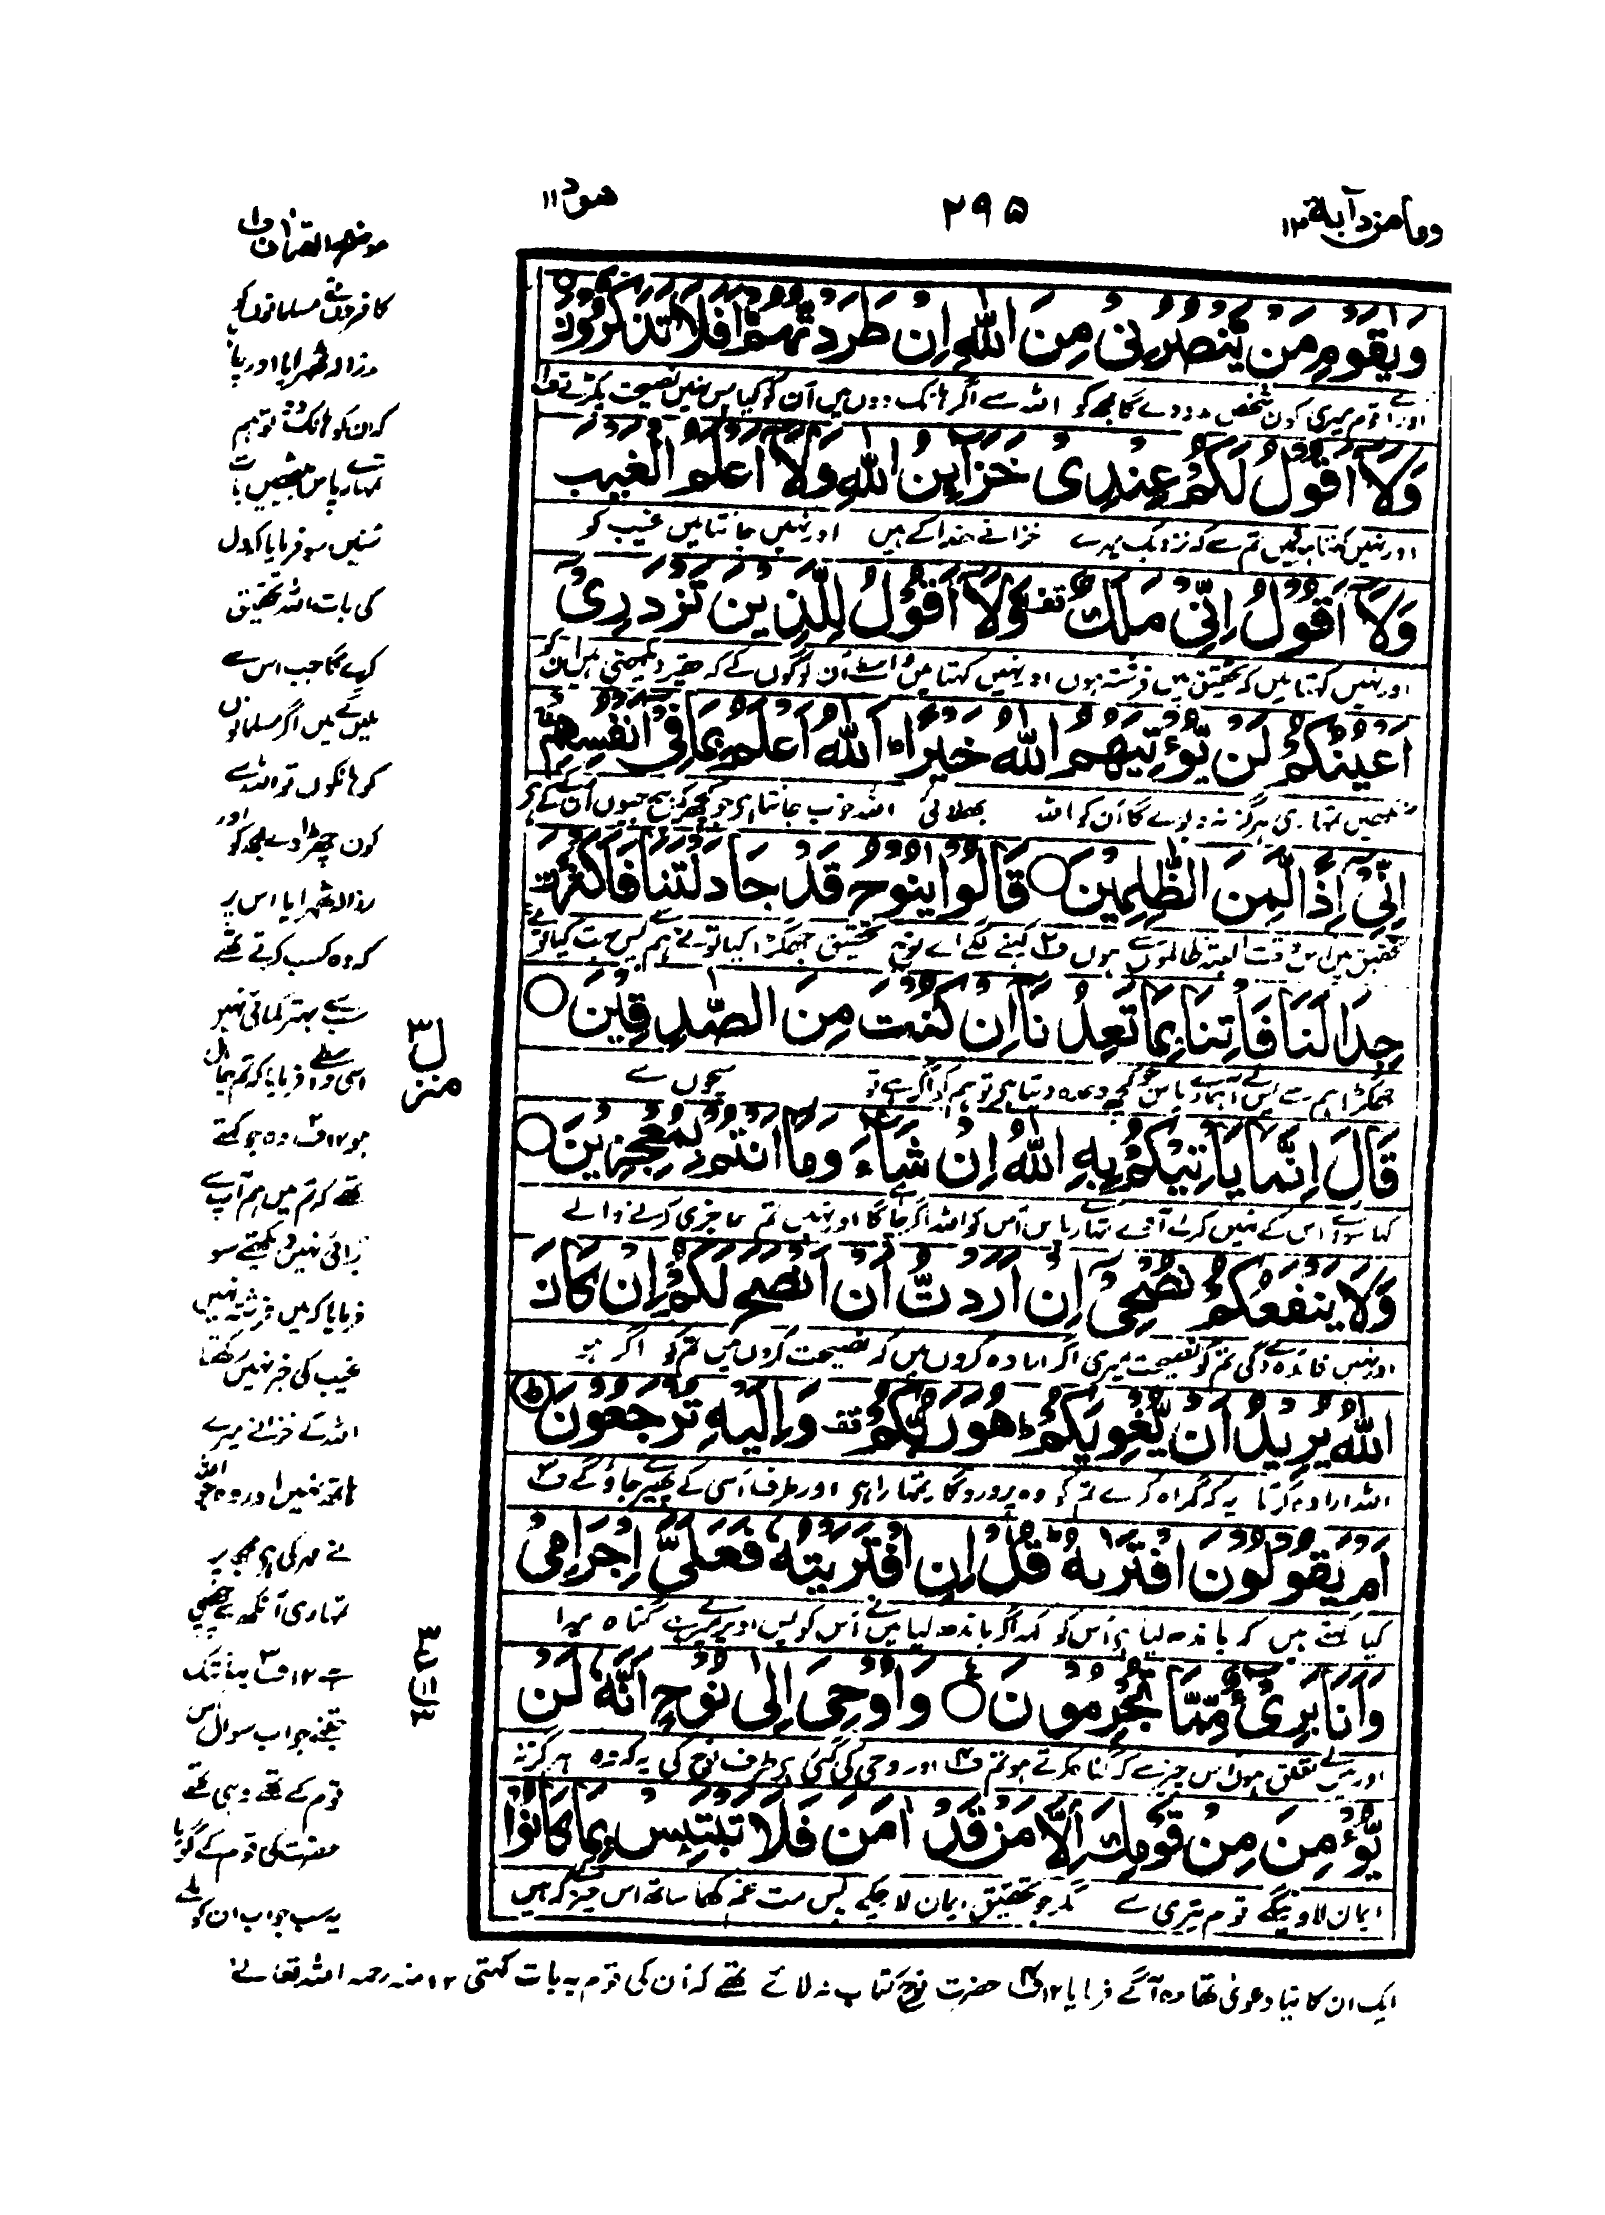 وما من دآبة ۱۲
۲۹۵
هود ۱۱
وَيٰقَوْمِ مَنْ يَّنْصُرُنِىْ مِنَ اللّٰهِ اِنْ طَرَدْتُّهُمْ ؕ اَفَلَا تَذَكَّرُوْنَ
اور اے قوم میری کون شخص مدد دے گا مجھ کو اللہ سے اگر ہانک دوں میں اُن کو کیا پس نہیں نصیحت پکڑتے تم
وَلَاۤ اَقُوْلُ لَكُمْ عِنْدِىْ خَزَآئِنُ اللّٰهِ وَلَاۤ اَعْلَمُ الْغَيْبَ
اور نہیں کہتا میں تم سے کہ نزدیک میرے خزانے خدا کے ہیں اور نہیں جانتا میں غیب کو
وَلَاۤ اَقُوْلُ اِنِّىْ مَلَكٌ قف وَّلَاۤ اَقُوْلُ لِلَّذِيْنَ تَزْدَرِىْۤ
اور نہیں کہتا میں کہ تحقیق میں فرشتہ ہوں اور نہیں کہتا میں واسطے اُن لوگوں کے کہ حقیر دیکھتی ہیں ان کو
اَعْيُنُكُمْ لَنْ يُّؤْتِيَهُمُ اللّٰهُ خَيْرًا ؕ اَللّٰهُ اَعْلَمُ بِمَا فِىْۤ اَنْفُسِهِمْ ۚۖ
آنکھیں تمہاری ہرگز نہ دیوے گا اُن کو اللہ بھلائی اللہ خوب جانتا ہی جو کچھ کہ بیچ جیوں اُن کے ہی
اِنِّىْۤ اِذًا لَّمِنَ الظّٰلِمِيْنَ ○ قَالُوْا يٰنُوْحُ قَدْ جَادَلْتَنَا فَاَكْثَرْتَ
تحقیق میں اس وقت البتہ ظالموں سے ہوں ف۲ کہنے لگے اے نوح تحقیق جھگڑا کیا تو نے ہم سے پس بہت کیا تو نے
جِدَالَنَا فَاْتِنَا بِمَا تَعِدُنَاۤ اِنْ كُنْتَ مِنَ الصّٰدِقِيْنَ ○
جھگڑا ہم سے پس لے آ ہمارے پاس جو کچھ وعدہ دیتا ہی تو ہم کو اگر ہے تو سچوں سے
قَالَ اِنَّمَا يَاْتِيْكُمْ بِهِ اللّٰهُ اِنْ شَآءَ وَمَاۤ اَنْتُمْ بِمُعْجِزِيْنَ ○
کہا سوائے اس کے نہیں کہ لے آوے تمہارے پاس اُس کو اللہ اگر چاہے گا اور نہیں تم عاجز کرنے والے
وَلَا يَنْفَعُكُمْ نُصْحِىْۤ اِنْ اَرَدْتُّ اَنْ اَنْصَحَ لَكُمْ اِنْ كَانَ
اور نہیں فائدہ دے گی تم کو نصیحت میری اگر ارادہ کروں میں کہ نصیحت کروں میں تم کو اگر ہو
اللّٰهُ يُرِيْدُ اَنْ يُّغْوِيَكُمْ ؕ هُوَ رَبُّكُمْ قف وَاِلَيْهِ تُرْجَعُوْنَ ؕ
اللہ ارادہ کرتا یہ کہ گمراہ کرے تم کو وہ پروردگار تمہارا ہی اور طرف اُسی کے پھیرے جاؤ گے ف۳
اَمْ يَقُوْلُوْنَ افْتَرٰىهُ ؕ قُلْ اِنِ افْتَرَيْتُهٗ فَعَلَىَّ اِجْرَامِىْ
کیا کہتے ہیں کہ باندھ لیا ہی اُس کو کہہ اگر باندھ لیا میں نے اُس کو پس اوپر میرے ہے گناہ میرا
وَاَنَا بَرِىْٓءٌ مِّمَّا تُجْرِمُوْنَ ○ وَاُوْحِىَ اِلٰى نُوْحٍ اَنَّهٗ لَنْ
اور میں بے تعلق ہوں اس چیز سے کہ گناہ کرتے ہو تم ف۴ اور وحی کی گئی ہی طرف نوح کی یہ کہ وہ ہرگز نہ
يُّؤْمِنَ مِنْ قَوْمِكَ اِلَّا مَنْ قَدْ اٰمَنَ فَلَا تَبْتَئِسْ بِمَا كَانُوْا
ایمان لاوینگے قوم تیری سے مگر جو تحقیق ایمان لا چکے پس مت غم کھا ساتھ اس چیز کے کہ ہیں
موضح القرآن ف۱
کافروں نے مسلمانوں کو
رزالہ ٹھہرایا اور چاہا
کہ ان کو ہانک دو تو ہم
تمہارے پاس بیٹھیں بات
سُنیں سو فرمایا کہ دل
کی بات اللہ تحقیق
کہے گا جب اس سے
ملیں گے میں اگر مسلمانوں
کو ہانکوں تو اللہ سے
کون چھڑا دے مجھ کو اور
رذالہ ٹھہرایا اس پر
کہ وہ کسب کرتے تھے
سب سے بہتر کمائی نہیں
اسی واسطے فرمایا کہ تم جاہل
ہو ۱۲ ف۲ وہ جو کہتے
تھے کہ تم میں ہم آپ سے
بڑائی نہیں دیکھتے سو
فرمایا کہ میں فرشتہ نہیں
غیب کی خبر نہیں رکھتا
اللہ کے خزانے میرے
ہاتھ نہیں اور وہ جو اللہ
نے مہر کی ہی مجھ پر
تمہاری آنکھ سے چھپی
ہے ۱۲ ف۳ یہاں تک
جتنے جواب سوال اس
قوم کے تھے وہی تھے
حضرت کی قوم کے گویا
یہ سب جواب ان کو ملے
منزل ۳
۳
ع
۳
ایک ان کا نیا دعویٰ تھا وہ آگے فرمایا ۱۲ ف۴ حضرت نوح کتاب نہ لائے تھے کہ اُن کی قوم یہ بات کہتی ۱۲ منہ رحمہ اللہ تعالےٰ